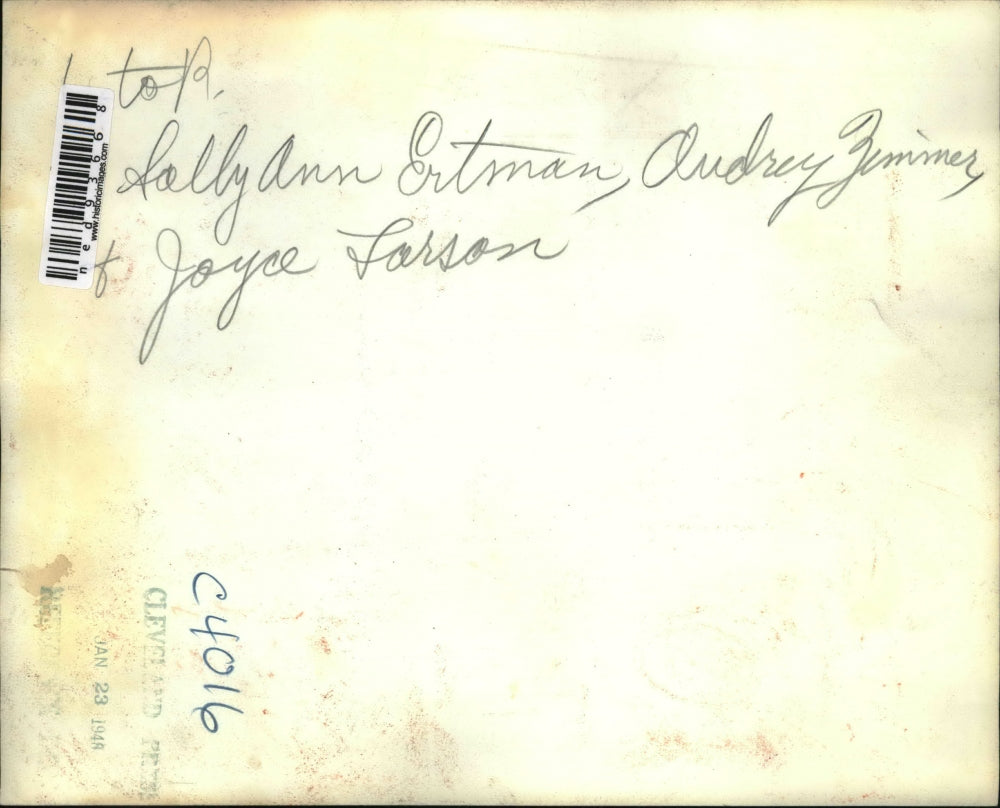 l to R.
Sally Ann Ertman, Audrey Zimmer,
& Joyce Larson
ned93668
www.historicimages.com
C4016
CLEVELAND PRESS
JAN 23 1948